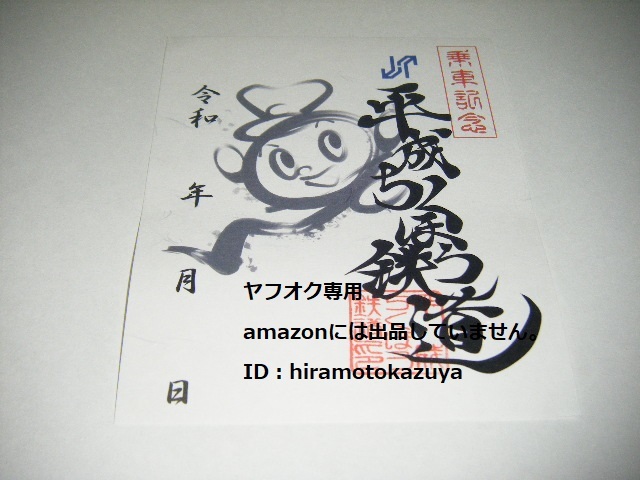 乗車記念
平成ちくほう鉄道
令和
年
月
日
ヤフオク専用
amazonには出品していません。
ID：hiramotokazuya